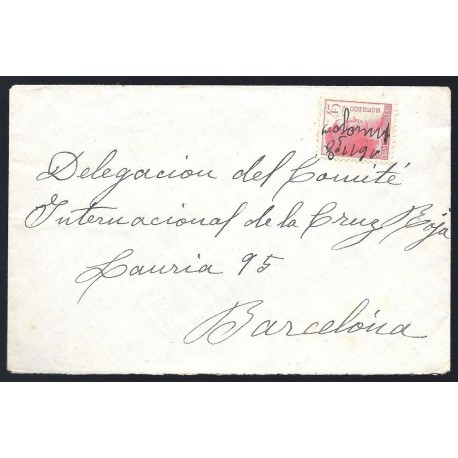 45
CORREOS
Delegacion del Comité
Internacional de la Cruz Roja
Lauria 95
Barcelona